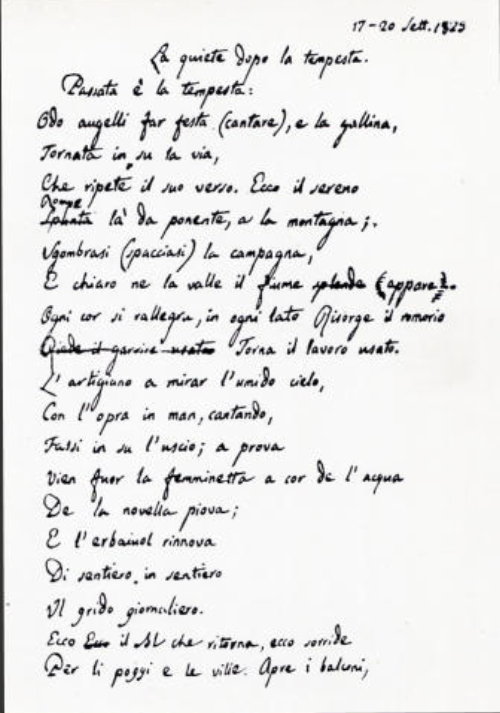 17-20 Sett. 1829
La quiete dopo la tempesta.
Passata è la tempesta:
Odo augelli far festa (cantare), e la gallina,
Tornata in su la via,
Che ripete il suo verso. Ecco il sereno
Rompe
Spunta là da ponente, a la montagna;.
Sgombrasi (spacciasi) la campagna,
E chiaro ne la valle il fiume splende (appare).
Ogni cor si rallegra, in ogni lato Risorge il romorio
garrire usato Torna il lavoro usato.
L'artigiano a mirar l'umido cielo,
Con l'opra in man, cantando,
Fassi in su l'uscio; a prova
Vien fuor la femminetta a cor de l'acqua
De la novella piova;
E l'erbaiuol rinnova
Di sentiero in sentiero
Il grido giornaliero.
Ecco Ecco il Sol che ritorna, ecco sorride
Per li poggi e le ville. Apre i balconi,